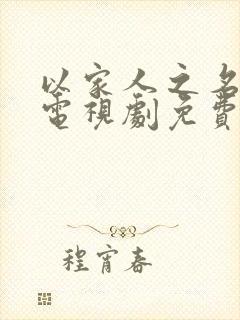 以家人之名
電視劇免費
程宵春